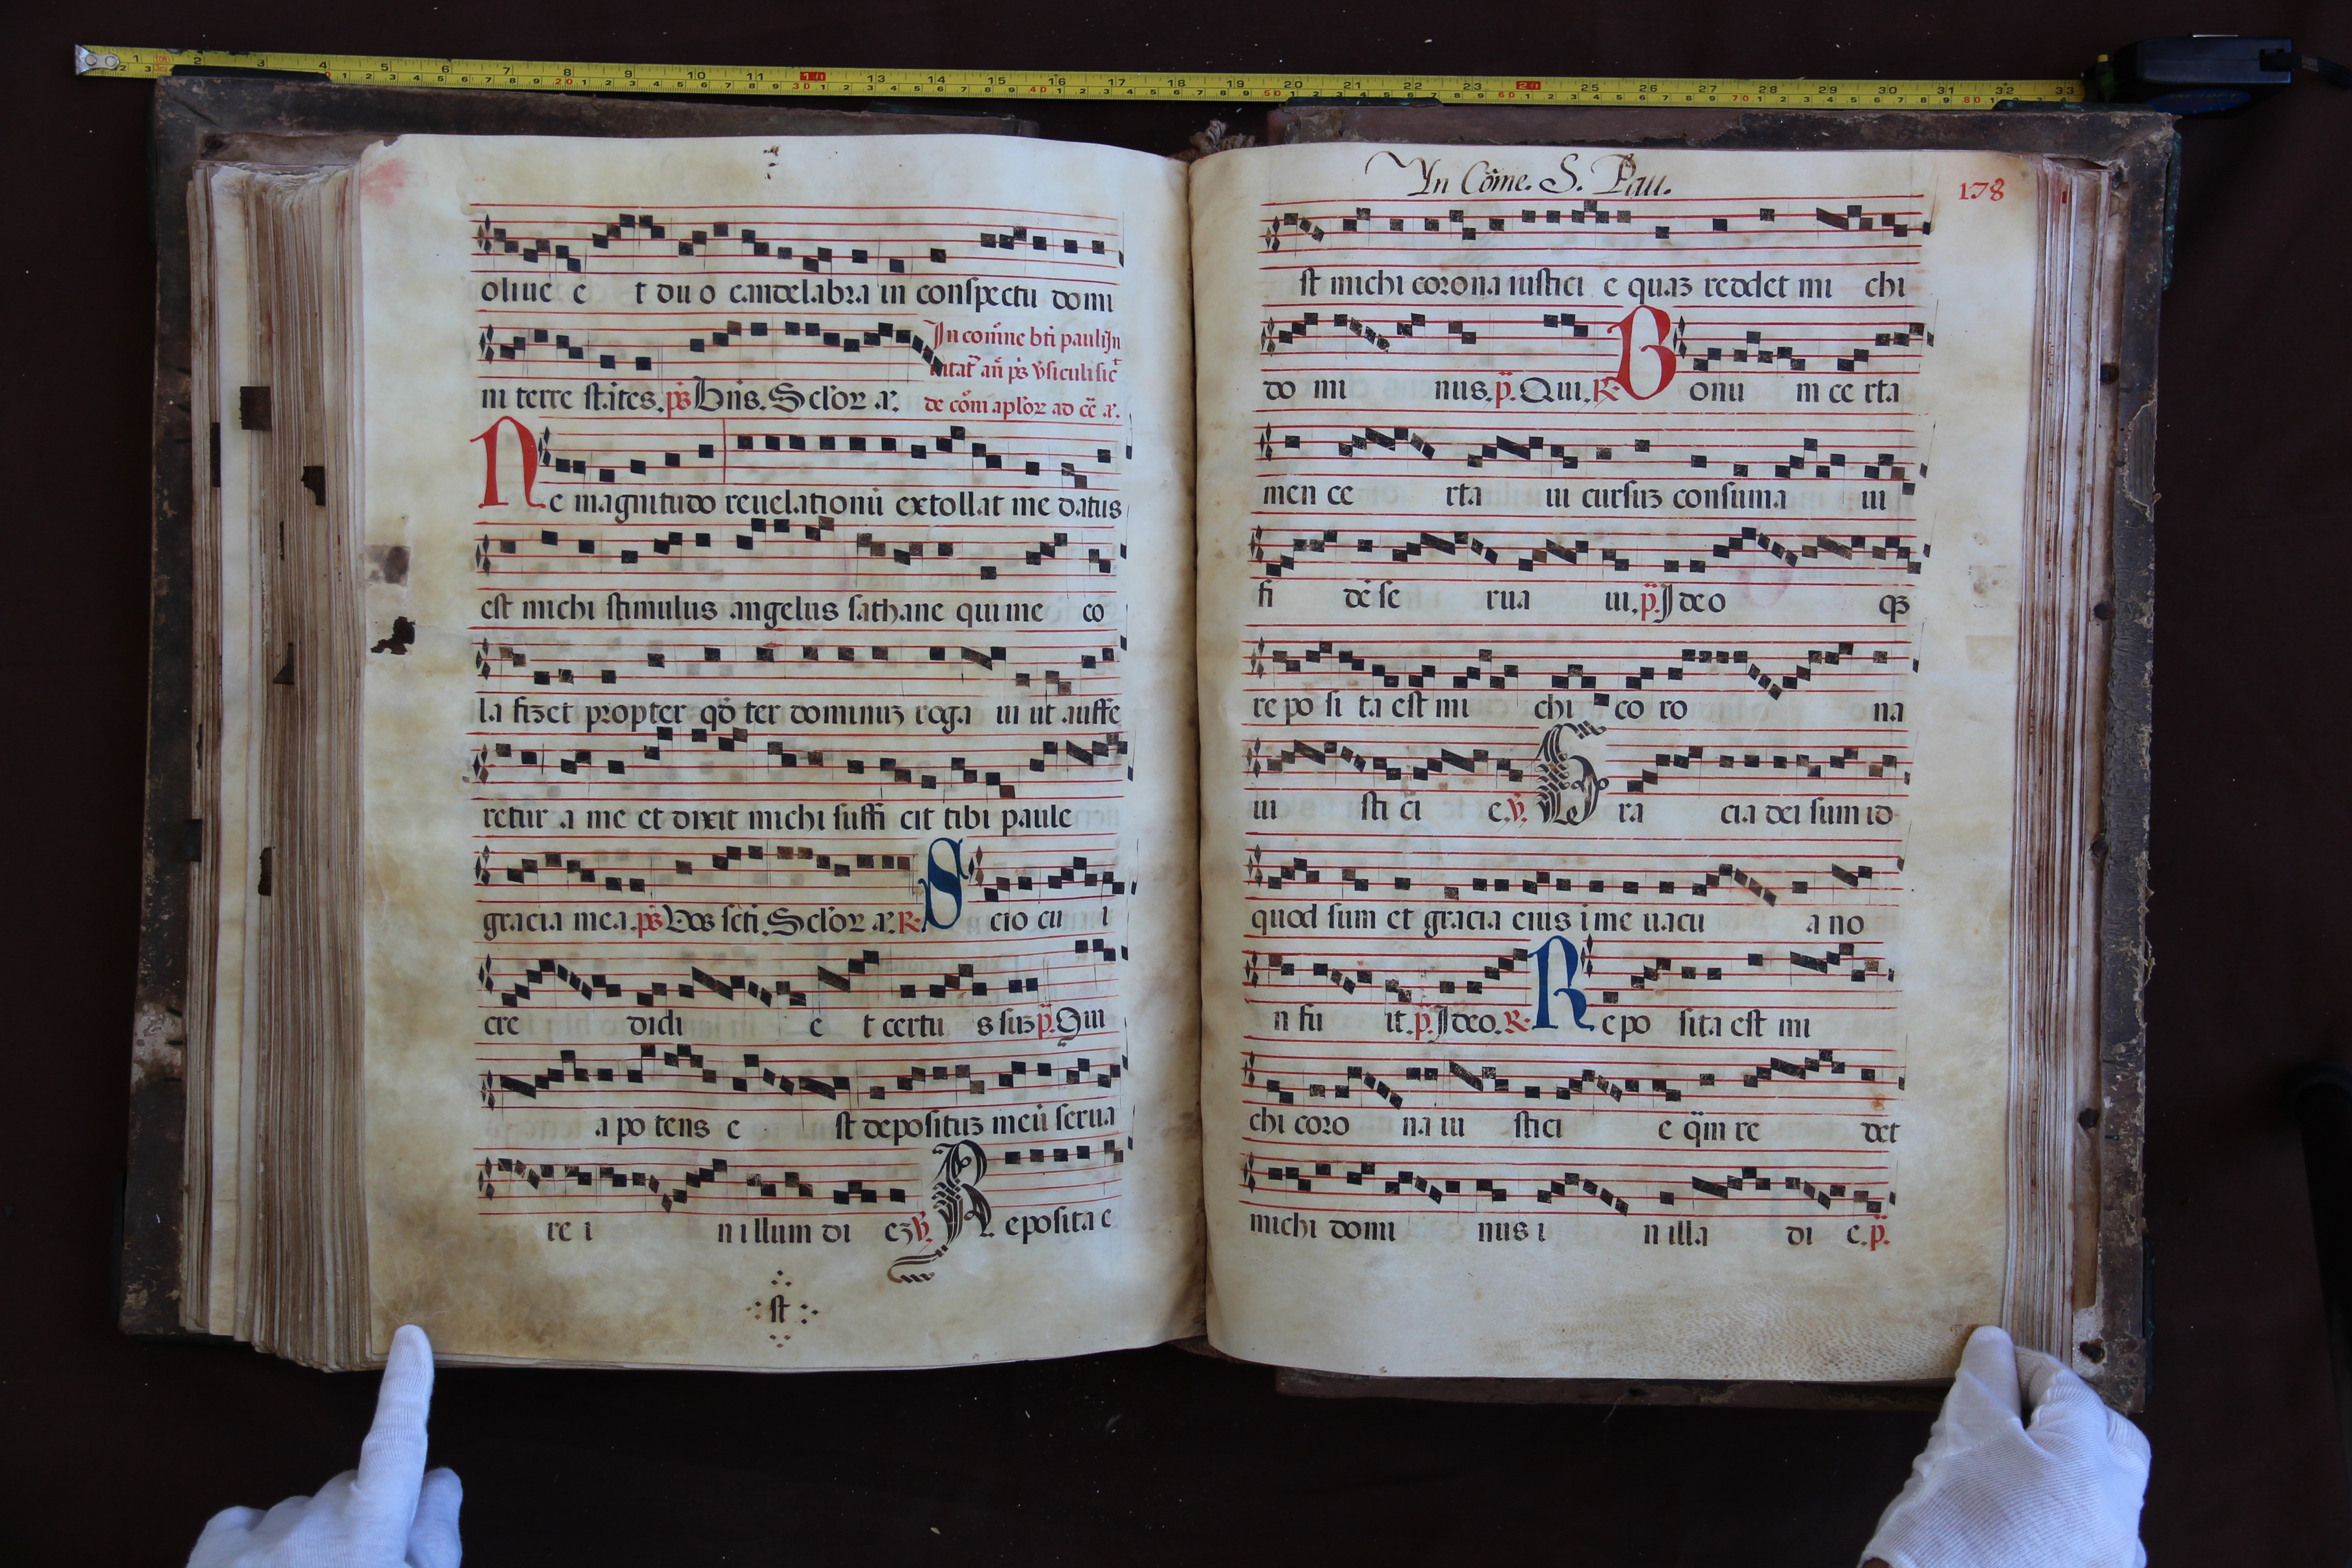 oliue e t du o candelabra in conspectu domi
In com̄ne bt̄i pauli In
ni terre stātes. ps̄ Dn̄s. Seclor̄ a.
de cōm aplōr ad cē a.
Ne magnitudo reuelationū extollat me datus
est michi stimulus angelus sathane qui me co
la fizet propter qd̄ ter dominuz roga ui ut auffe
retur a me et dixit michi suffi cit tibi paule
gracia mea. ps̄ Vos scti. Seclor̄ a. R. Scio cu i
cre didi e t certu s suz p̄. Qui
a po tens e st deposituz meū serua
re i n illum di ez ℣. Reposita e
st
In Cōme. S. Pau.
178
st michi corona iustici e quaz reddet mi chi
do mi nus. p̄. Qui. R. Bonu m ce rta
men ce rta ui cursuz consuma ui
fi dē se rua ui. p̄. Ideo qz
re po si ta est mi chi co ro na
iu sti ci e. ℣. Gra cia dei sum id
quod sum et gracia eius i me uacu a no
n fu it. p̄. Ideo. R. Repo sita est mi
chi coro na iu stici e q̄m re det
michi domi nus i n illa di e. p̄.